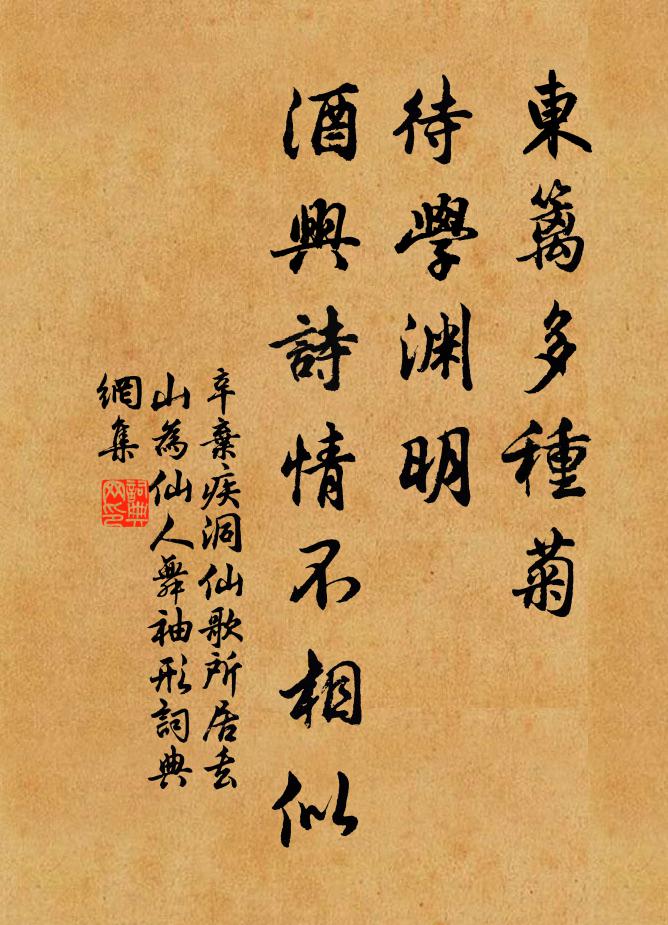 東籬多種菊
待學渊明
酒興詩情不相似
辛棄疾洞仙歌所居丟
山為仙人舞袖形詞典
網集
詞典
网印